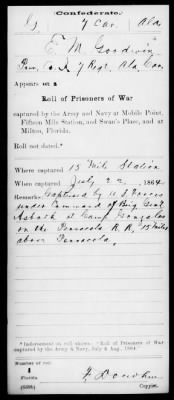 Confederate.
G 7 Cav. Ala
E. M. Goodwin
Priv, Co. A 7 Regt. Ala. Cav.
Appears on a
Roll of Prisoners of War
captured by the Army and Navy at Mobile Point,
Fifteen Mile Station, and Swan's Place, and at
Milton, Florida.
Roll not dated.*
Where captured 15 Mile Station
When captured July 22, 1864
Remarks: Captured by U. S. Forces
under Command of Brig Genl
Asboth at Camp Gonzales
on the Pensacola R. R. 15 Miles
above Pensacola.
*Indorsement on roll shows: "Roll of Prisoners of War
captured by the Army & Navy, July & Aug. 1864."
Number of roll:
1
Florida
Copyist.